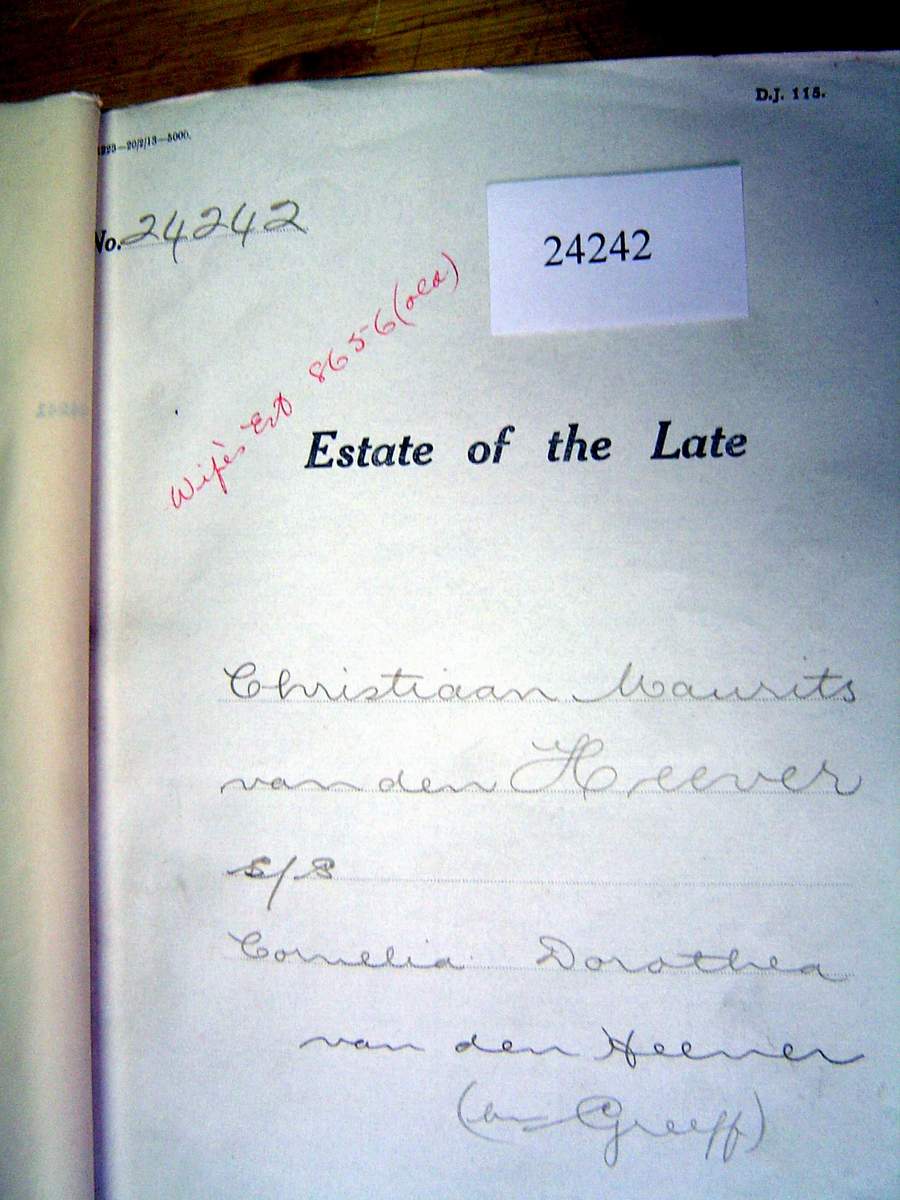 D.J. 115.
1223—20/2/13—5000.
No. 24242
24242
Wife's Est 8656 (old)
Estate of the Late
Christiaan Maurits
van den Heever
s/s
Cornelia Dorothea
van den Heever
Greeff)